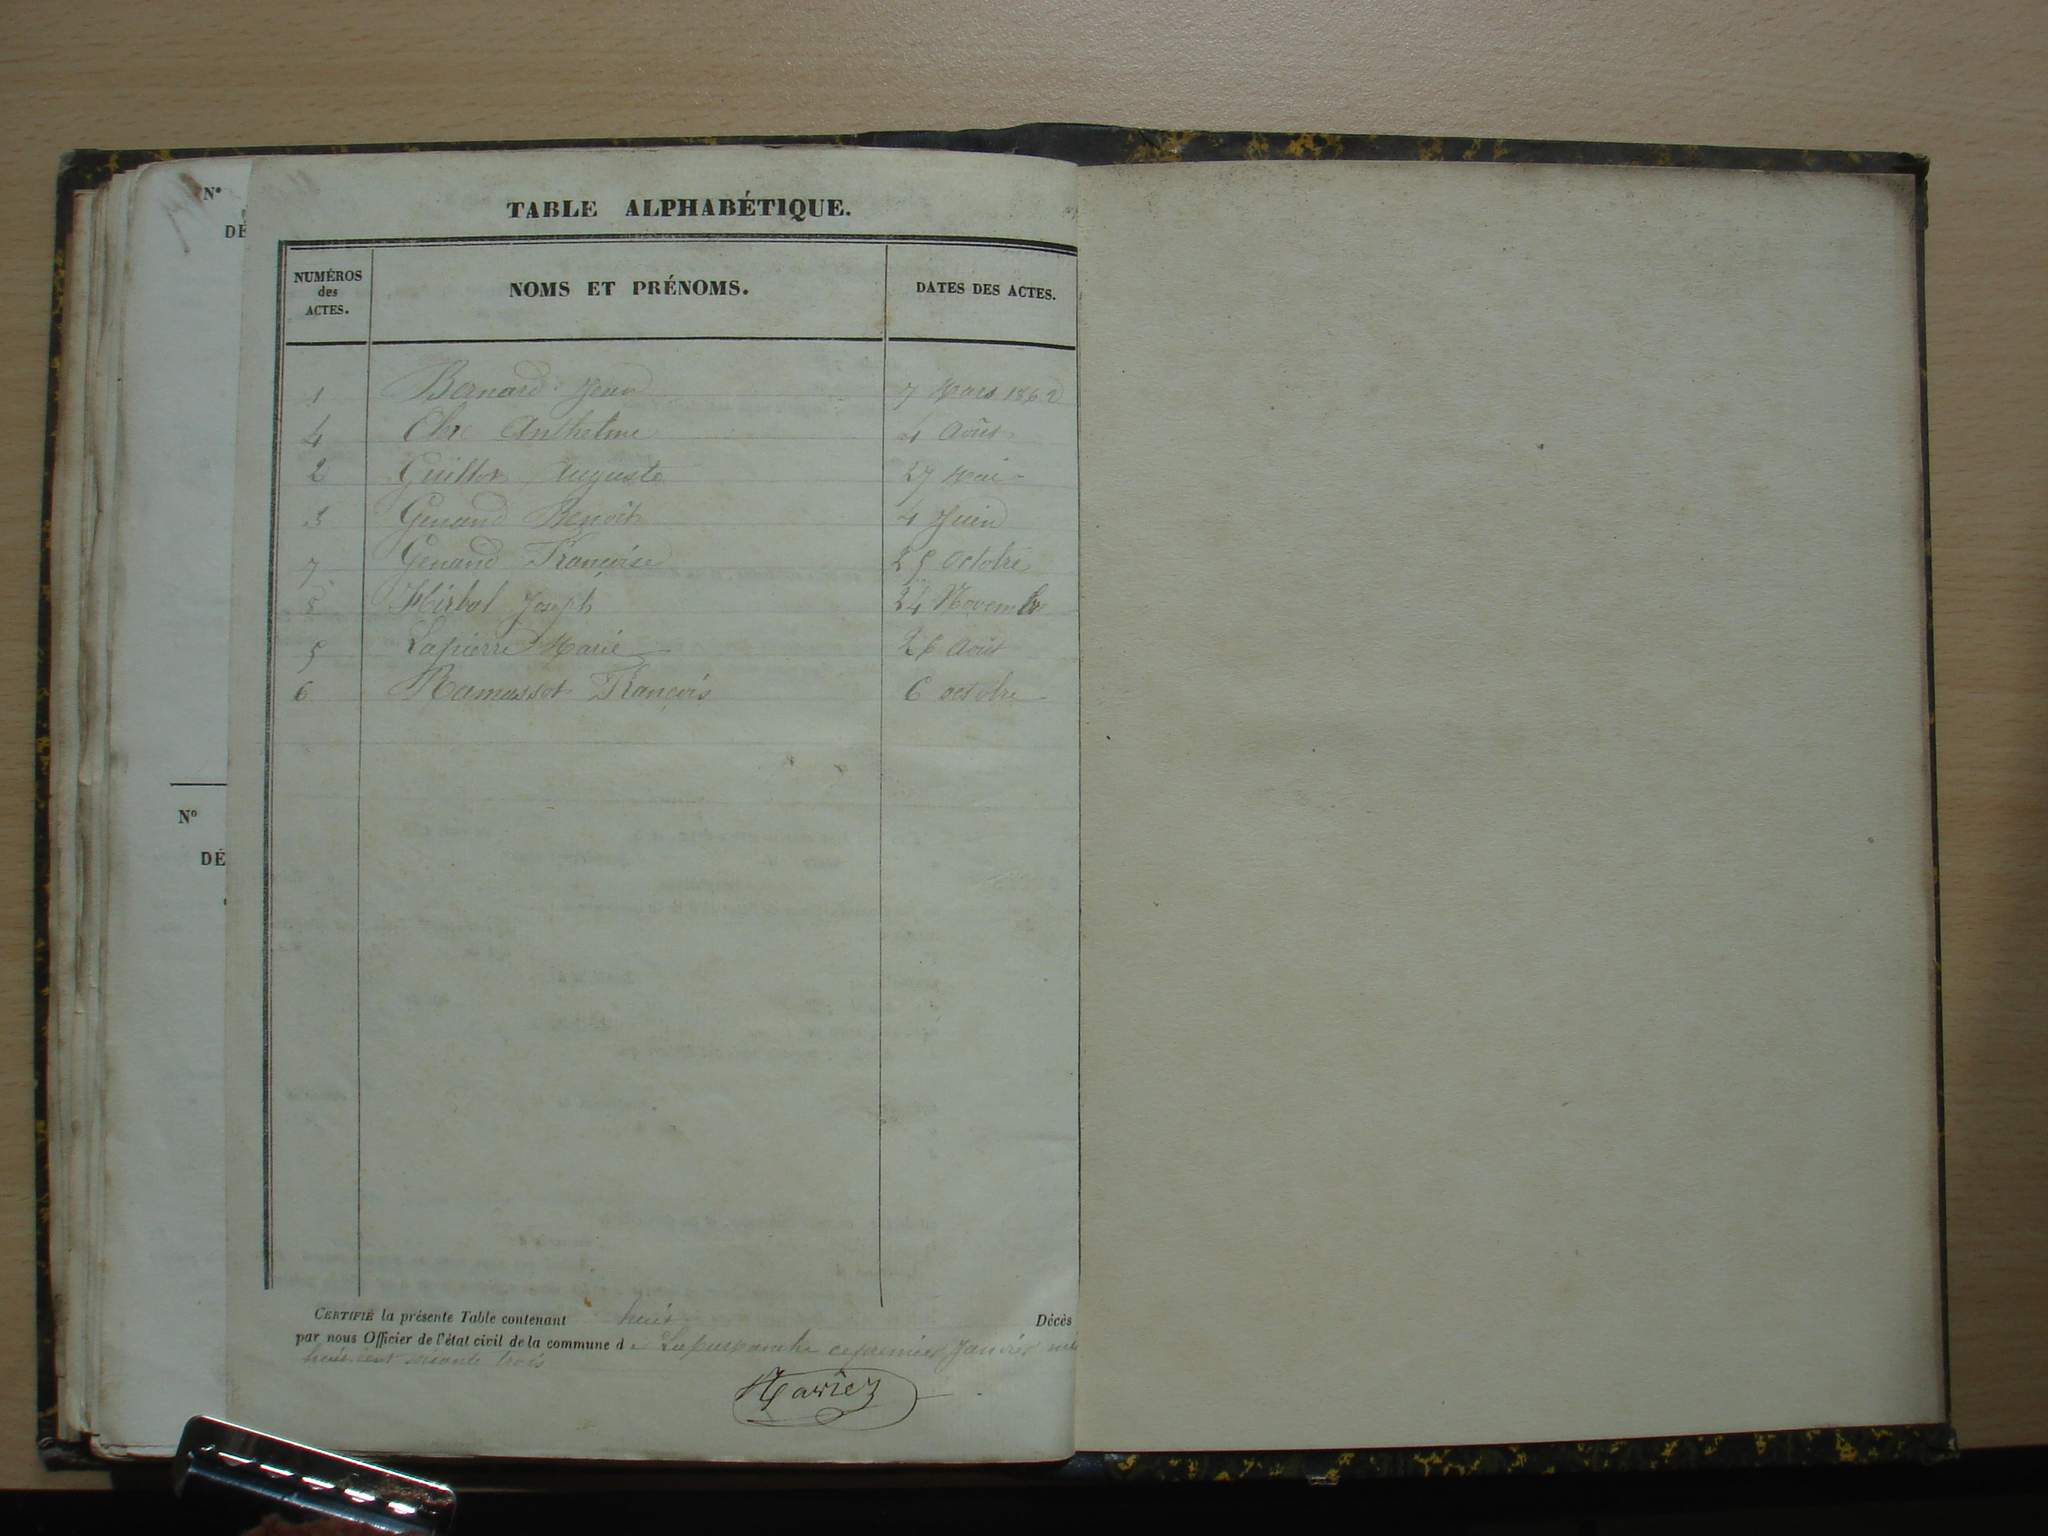 N°
DÉ
N°
DÉ
TABLE ALPHABÉTIQUE.
NUMÉROS
des
ACTES.
NOMS ET PRÉNOMS.
DATES DES ACTES.
1 Bernard Jean 7 Mars 1862
4 Anthelme 4 Août
2 Guillot Auguste 27 Mai
3 Genand Benoît 4 Juin
7 Genand Françoise 25 octobre
8 Joseph 24 Novembre
5 Lapierre Marie 26 Août
6 Ramussot François 6 octobre
CERTIFIÉ la présente Table contenant huit Décès
par nous Officier de l'état civil de la commune de ce premier Janvier mil
huit cent soixante trois